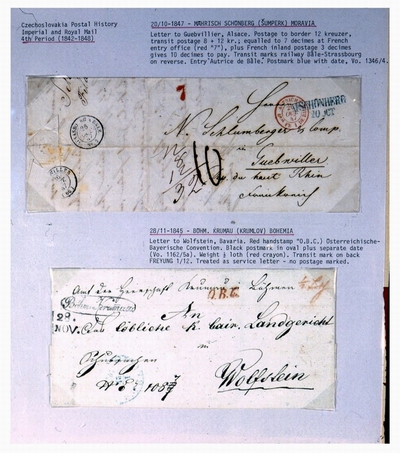 Czechoslovakia Postal History
Imperial and Royal Mail
4th Period (1842-1848)
20/10-1847 - MÄHRISCH SCHÖNBERG (ŠUMPERK) MORAVIA.
Letter to Guebvillier, Alsace. Postage to border 12 kreuzer,
transit postage 8 + 12 kr.; equalled to 7 decimes at French
entry office (red "7"), plus French inland postage 3 decimes
gives 10 decimes to pay. Transit marks railway Bâle-Strassbourg
on reverse. Entry Autrice de Bâle. Postmark blue with date, Vo. 1346/4.
7
SCHÖNBERG
20 OCT
N. Schlumberger & Comp.
in
Guebwiller
10
du haut Rhin
28/11-1845 - BÖHM. KRUMAU (KRUMLOV) BOHEMIA
Letter to Wolfstein, Bavaria. Red handstamp "O.B.C.) Österreichische-
Bayerische Convention. Black postmark in oval plus separate date
(Vo. 1162/5a). Weight ½ loth (red crayon). Transit mark on back
FREYUNG 1/12. Treated as service letter - no postage marked.
O.B.C.
28.
NOV.
An
löbliche K. bair. Landgericht
in
Wolfstein